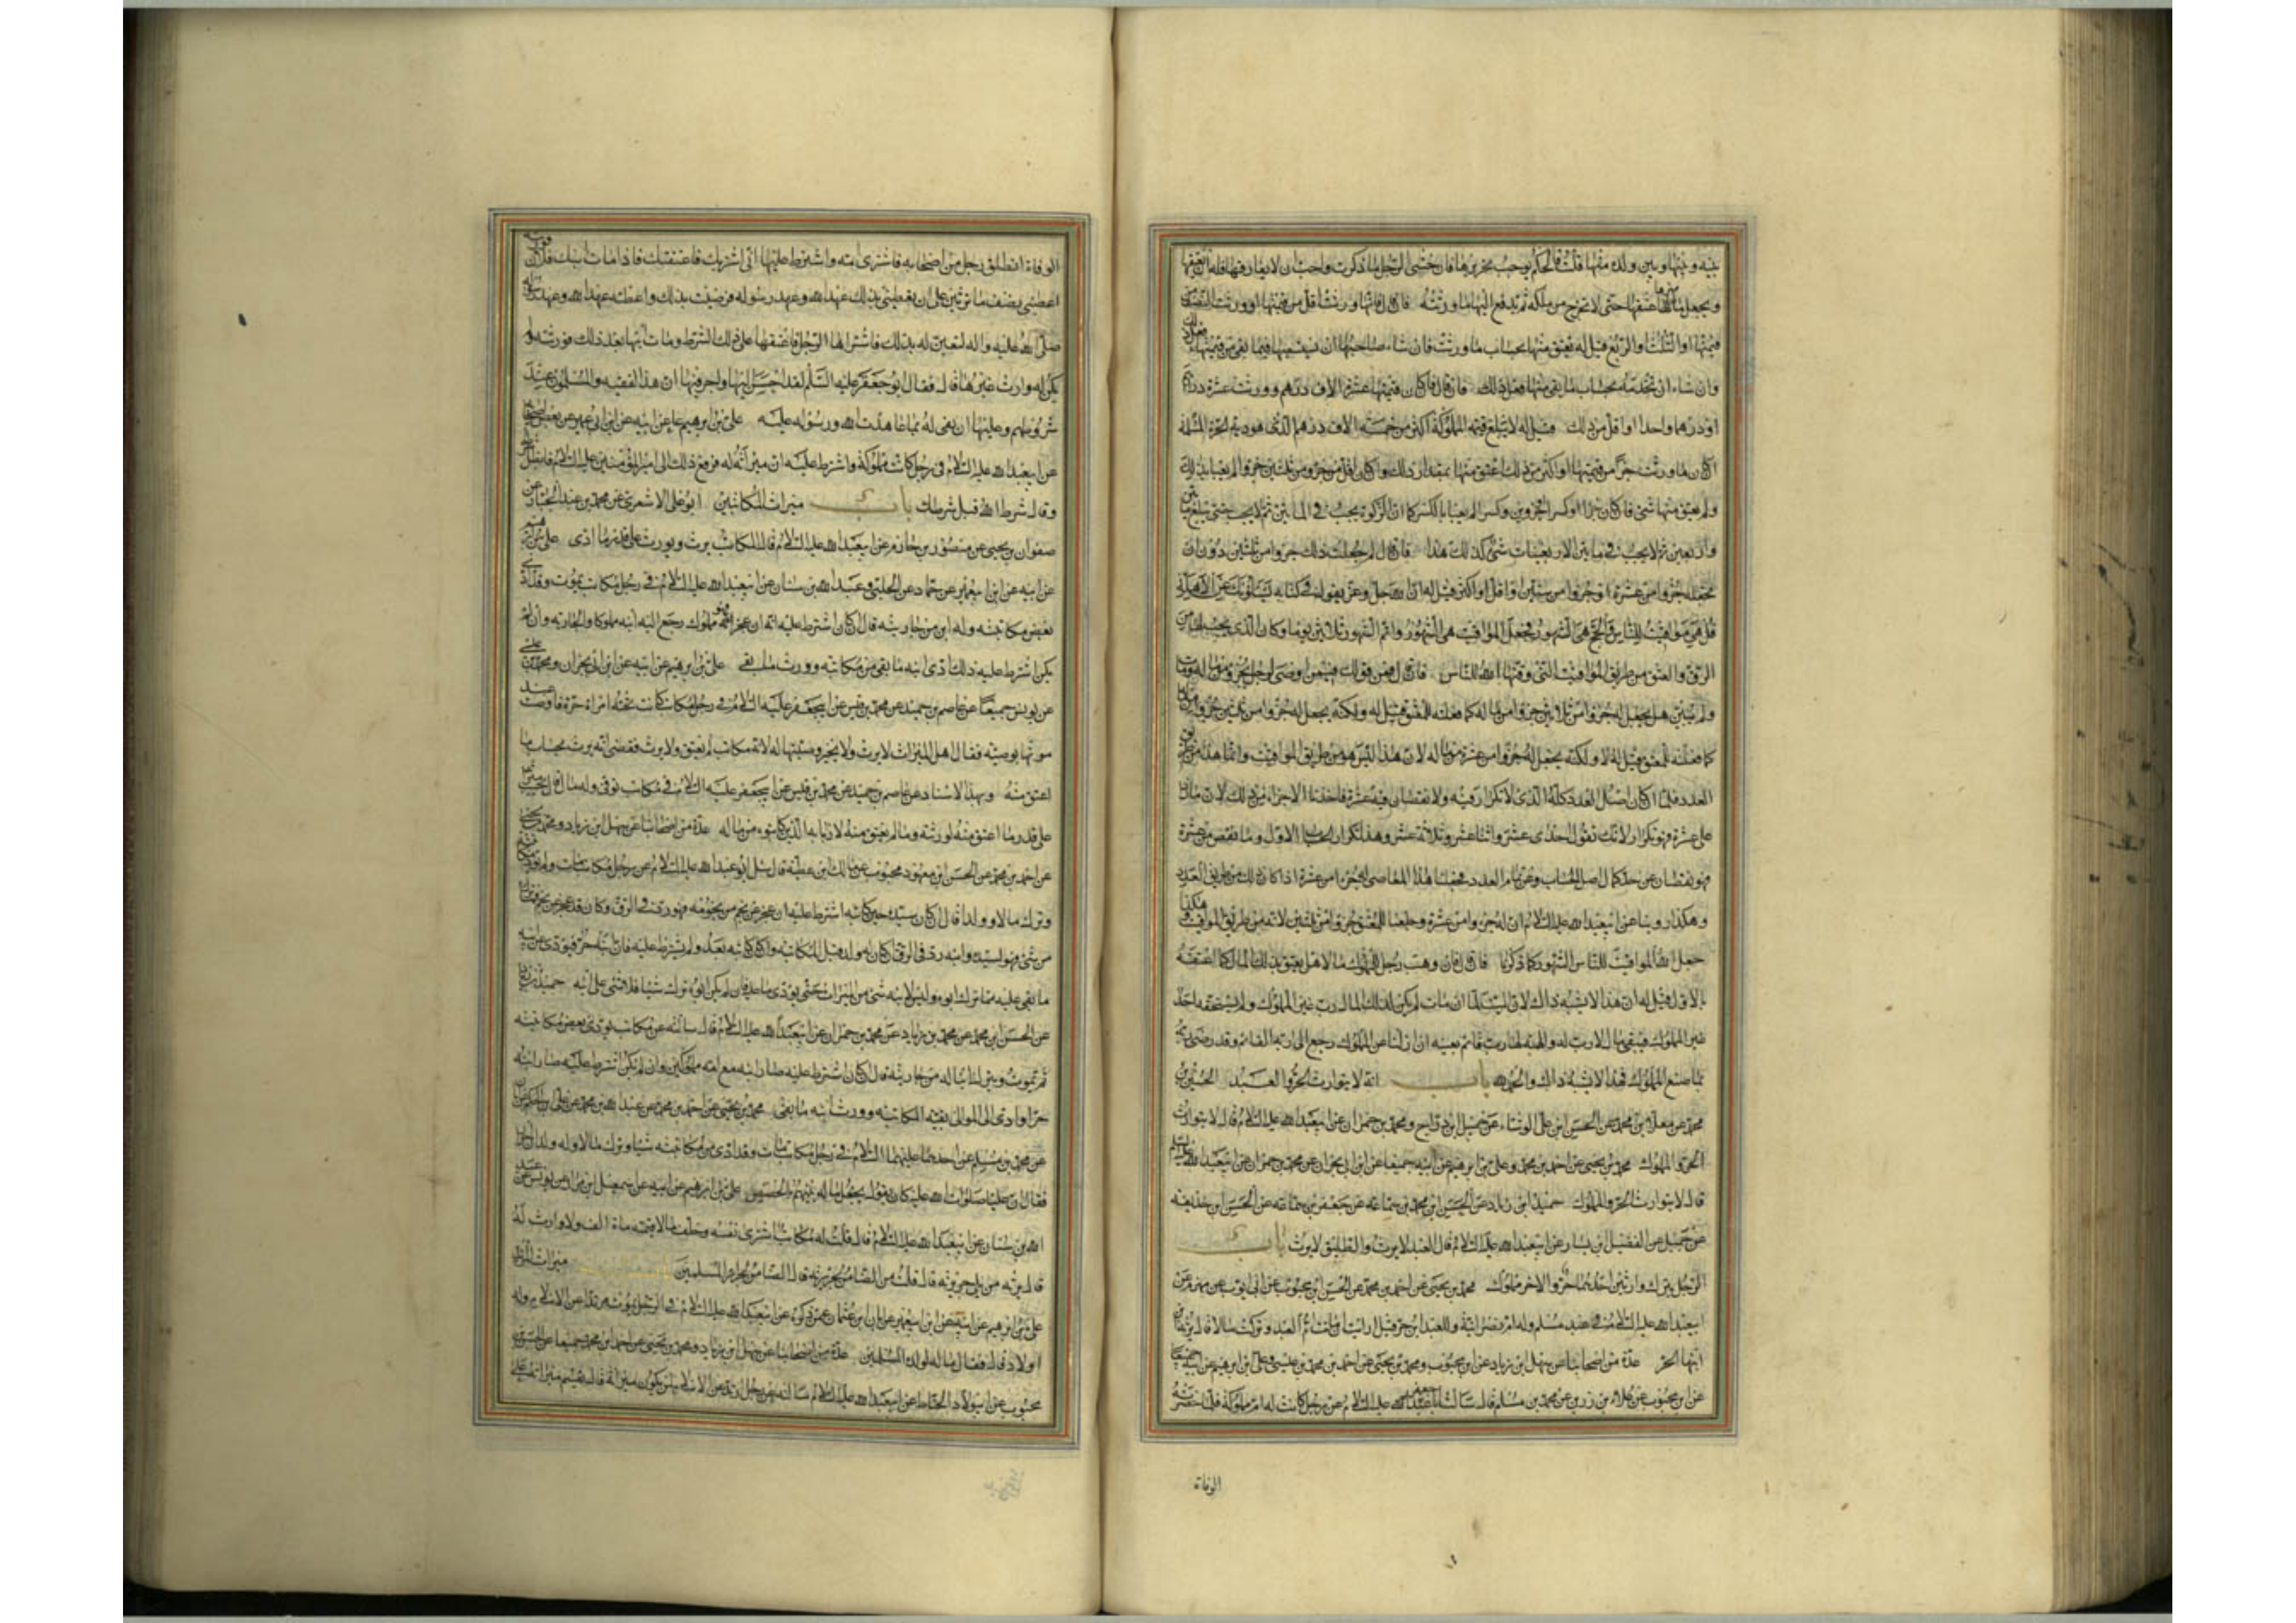 بينه وبينها وبين ولده منها قلت فالحكم يوجب تحريرها فان خشى الرجل ما ذكرت واحب ان لا يفارقها فله ان يعتقها
ويجعل مالها عتقها حتى لا تخرج من ملكه ثم يدفع اليها ما ورثته فان قال فانها ورثت اقل من قيمتها او ورثت النصف من
قيمتها او الثلث او الربع قيل له يعتق منها بحساب ما ورثت فان شاء صاحبها ان يستسعيها فيما بقى من قيمتها فعل ذلك
وان شاء ان تخدمه بحساب ما بقى منها فعل ذلك فان قال فان كان قيمتها عشرة الاف درهم وورثت عشرة دراهم
او درهما واحدا او اقل من ذلك قيل له لا تبلغ قيمة المملوكة اكثر من خمسة الاف درهم الذى هو دية الحرة المسلمة
ان كان ما ورثت جزأ من قيمتها او اكثر من ذلك اعتق منها بمقدار ذلك وان كان اقل من جزء من ثلثين جزءا لم يعبأ بذلك
ولم يعتق منها شئ فان كان جزءا وكسرا او جزوين وكسرا لم يعبأ بالكسر كما ان الزكوة يجب فى المائتين ثم لا يجب حتى تبلغ مائتين
واربعين ثم لا يجب فى ما بين الاربعينات شئ كذلك هذا فان قال لم جعلت ذلك جزوا من ثلثين دون ان
تجعله جزوا من عشرة او جزوا من ستين او اقل او اكثر قيل له ان الله جل وعز يقول فى كتابه يسئلونك عن الاهلة
قل هى مواقيت للناس والحج هى الشهور فجعل المواقيت هى الشهور واتم الشهور ثلاثين يوما وكان الذى يجب لها من
الرق والعتق من طريق المواقيت التى وقتها الله للناس فان قال فمن قولك فيمن اوصى لرجل بجزو من ماله ومات
ولم يتبين هل يجعل له جزوا من ثلاثين جزوا من ماله كما فعلته للمعتق قيل له ولكنه يجعل له جزوا من
كما فعلته للمعتق قيل له لا ولكنه يجعل له جزوا من عشرة من ماله لان هذا ليس هو من طريق المواقيت وانما هذا من طريق
العدد فلما ان كان اصل العدد كله الذى لا تكرار فيه ولا نقصان فيه عشرة فاخذنا الاجزاء من ذلك لان ما زاد
على عشرة فهو تكرار لانك تقول احدى عشر واثنا عشر وثلاثة عشر وهذا تكرار الحساب الاول وما نقص من عشرة
فهو نقصان عن حد كمال اصل الحساب وعن تمام العدد فجعلنا لهذا الموصى له جزءا من عشرة اذا كان ذلك من طريق العدد
وهكذا روينا عن ابيعبد الله عليه السلام ان له جزوا من عشرة وجعلنا للمعتق جزوا من ثلثين لانه من طريق المواقيت
جعل الله المواقيت للناس الشهور كما ذكرنا فان قال فان وهب رجل للمملوك مالا هل يعتق بذلك المال كما اعتقته
بالاول قيل له ان هذا لا يشبه ذاك لان الميت لما ان مات لم يكن لذلك المال رب غير المملوك ولم يستحقه احد
غير المملوك فيبقى مال لا رب له والهبة لها رب قائم بعينه ان ازلنا عن المملوك رجع الى ربه القائم وقد رضى
بما صنع المملوك فهذا لا يشبه ذاك والحمد لله باب انه لا يتوارث الحر والعبد الحسين بن
محمد عن معلا بن محمد عن الحسن ابن على الوشاء عن جميل ابن دراج ومحمد بن حمران عن ابيعبد الله عليه السلام قال لا يتوارث
الحر والمملوك محمد بن يحيى عن احمد بن محمد وعلى بن ابرهيم عن ابيه جميعا عن ابن ابى نجران عن محمد بن حمران عن ابيعبد الله عليه السلام
قال لا يتوارث الحر والمملوك حميد ابن زياد عن الحسن ابن محمد بن سماعة عن جعفر بن سماعه عن الحسن ابن حذيفه
عن جميل عن الفضيل ابن يسار عن ابيعبد الله عليه السلام قال العبد لا يرث والطليق لا يرث باب
الرجل يترك وارثين احدهما حر والاخر مملوك محمد بن يحيى عن احمد بن محمد عن الحسن ابن محبوب عن ابى ايوب عن مهزم عن
ابيعبد الله عليه السلام فى عبد مسلم وله ام نصرانية وللعبد ابن حر قيل ارايت ان ماتت ام العبد وتركت مالا قال يرثها ابن
ابنها الحر عدة من اصحابنا عن سهل ابن زياد عن ابن محبوب ومحمد بن يحيى عن احمد بن محمد بن عيسى وعلى بن ابرهيم عن ابيه جميعا
عن ابن محبوب عن علاء بن رزين عن محمد بن مسلم قال سالت ابا عبد الله عليه السلام عن رجل كانت له ام مملوكة فلما حضرته
الوفاة
الوفاة انطلق رجل من اصحابه فاشترى امه واشترط عليها انى اشتريك فاعتقتك فاذا مات ابنك فلان فورثته
اعطينى نصف ما ترثين على ان تعطينى بذلك عهد الله وعهد رسوله فرضيت بذلك واعطته عهد الله وعهد رسوله
صلى الله عليه واله لتفين له بذلك فاشتراها الرجل فاعتقها على ذلك الشرط ومات ابنها بعد ذلك فورثته ولم
يكن له وارث غيرها قال فقال ابو جعفر عليه السلم لقد احسن اليها واجر فيها ان هذا لفقيه والمسلمون عند
شروطهم وعليها ان تفى له بما عاهدت الله ورسوله عليه على بن ابرهيم عن ابيه عن ابن ابى عمير عن بعض اصحابه
عن ابيعبد الله عليه السلام فى رجل كاتب مملوكه واشترط عليه ان ميراثه له فرفع ذلك الى امير المؤمنين عليه السلام فابطل شرطه
وقال شرط الله قبل شرطك باب ميراث المكاتبين ابو على الاشعرى عن محمد بن عبد الجبار عن
صفوان بن يحيى عن منصور بن حازم عن ابيعبد الله عليه السلام قال المكاتب يرث ويورث على قدر ما ادى على بن ابرهيم
عن ابيه عن ابن ابيعمير عن حماد عن الحلبى وعبد الله بن سنان عن ابيعبد الله عليه السلام فى رجل مكاتب يموت وقد ادى
بعض مكاتبته وله ابن من جاريته قال ان كان اشترط عليه انه ان عجز فهو مملوك رجع اليه ابنه مملوكا والجاريه وان لم
يكن اشترط عليه ذلك ادى ابنه ما بقى من مكاتبته وورث ما بقى على بن ابرهيم عن ابيه عن ابن ابى نجران ومحمد بن عيسى
عن يونس جميعا عن عاصم بن حميد عن محمد بن قيس عن ابيجعفر عليه السلام فى رجل مكاتب كانت تحته امراة حرة فاوصت عند
موتها بوصيه فقال اهل الميراث لا يرث ولا نجيز وصيتها له لانه مكاتب لم يعتق ولا يرث فقضى انه يرث بحساب ما
اعتق منه وبهذا الاسناد عن عاصم بن حميد عن محمد بن قيس عن ابيجعفر عليه السلام فى مكاتب توفى وله مال قال يحسب ميراثه
على قدر ما اعتق منه لورثته وما لم يعتق منه لاربابه الذين كاتبوه من ماله عدة من اصحابنا عن سهل ابن زياد ومحمد بن يحيى
عن احمد بن محمد عن الحسن ابن محبوب عن مالك ابن عطية قال سئل ابو عبد الله عليه السلام عن رجل مكاتب مات ولم يؤد مكاتبته
وترك مالا وولدا قال ان كان سيده حين كاتبه اشترط عليه ان عجز عن نجم من نجومه فهو رد فى الرق وكان قد عجز عن نجم فما ترك
من شئ فهو لسيده وابنه رد فى الرق ان كان له ولد قبل المكاتبه وان كان كاتبه بعد ولم يشترط عليه فان ابنه حر فيؤدى عن ابيه
ما بقى عليه مما ترك ابوه وليس لابنه شئ من الميراث حتى يؤدى ما عليه فان لم يكن ابوه ترك شيئا فلا شئ على ابنه حميد بن زياد
عن الحسن ابن محمد عن محمد بن زياد عن محمد بن حمران عن ابيعبد الله عليه السلام قال سالته عن مكاتب يؤدى بعض مكاتبته
ثم يموت ويترك ابنا له من جاريته قال ان كان اشترط عليه صار ابنه مع امه مملوكين وان لم يكن اشترط عليه صار ابنه
حرا وادى الى الموالى بقية المكاتبه وورث ابنه ما بقى محمد بن يحيى عن احمد بن محمد عن عبد الله بن محمد عن على بن الحكم
عن محمد بن مسلم عن احدهما عليهما السلام فى رجل مكاتب مات وقد ادى من مكاتبته شيئا وترك مالا وله ولدان احرار
فقال ان عليا صلوات الله عليه كان يقول يجعل ماله بينهم بالحصص على بن ابرهيم عن ابيه عن سمعيل ابن مرار عن يونس عن عبد
الله بن سنان عن ابيعبد الله عليه السلام قال قلت له مكاتب اشترى نفسه وخلف مالا قيمته ماة الف ولا وارث له
قال يرثه من يلى جريرته قال قلت من الضامن لجريرته قال الضامن لجراير المسلمين باب ميراث المرتد
على بن ابرهيم عن ابيه عن ابن ابيعمير عن ابان بن عثمان عمن ذكره عن ابيعبد الله عليه السلام فى الرجل يموت مرتدا عن الاسلام وله
اولاد قال فقال ماله لولده المسلمين عدة من اصحابنا عن سهل ابن زياد ومحمد بن يحيى عن احمد ابن محمد جميعا عن الحسن
محبوب عن ابيولاد الحناط عن ابيعبد الله عليه السلام قال سالته عن رجل ارتد عن الاسلام لمن يكون ميراثه قال يقسم ميراثه على